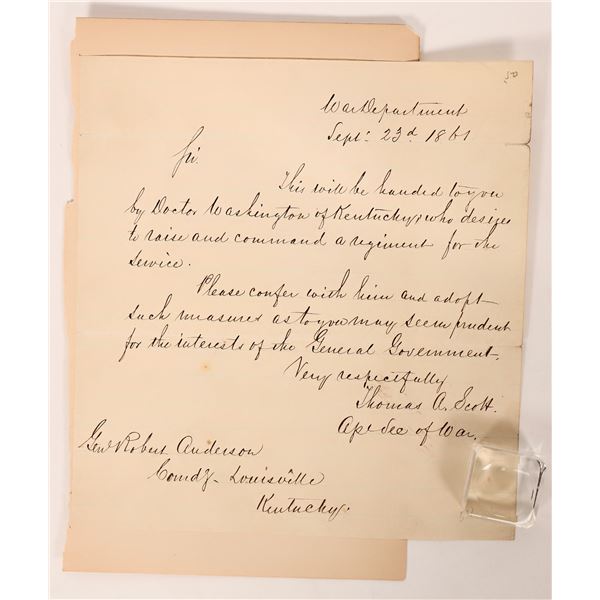 War Department
Sept. 23d 1861
Sir.
This will be handed to you
by Doctor Washington of Kentucky, who desires
to raise and command a regiment for the
service.
Please confer with him and adopt
such measures as to you may seem prudent
for the interests of the General Government.
Very respectfully
Thomas A. Scott.
Ast Sec of War.
Genl Robert Anderson
Comdg - Louisville
Kentucky.